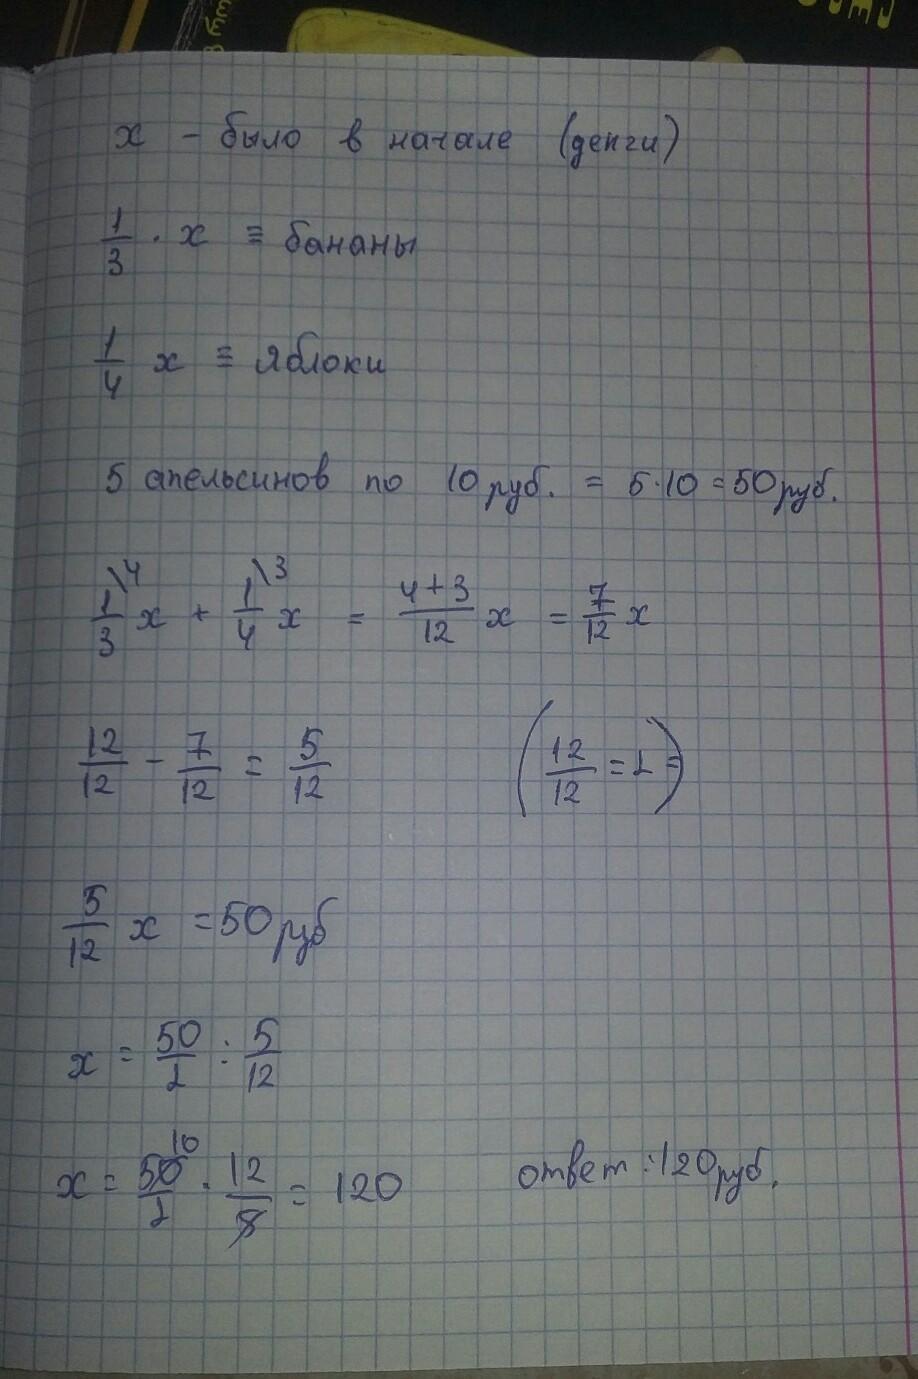 x - было в начале (денги)
1/3 · x ≡ бананы
1/4 x ≡ яблоки
5 апельсинов по 10 руб. = 5·10 = 50 руб.
1/3\4 x + 1/4\3 x = (4+3)/12 x = 7/12 x
12/12 - 7/12 = 5/12 (12/12 = 1 =)
5/12 x = 50 руб
x = 50/1 : 5/12
x = 50/1 10 · 12/5 = 120 ответ : 120 руб.